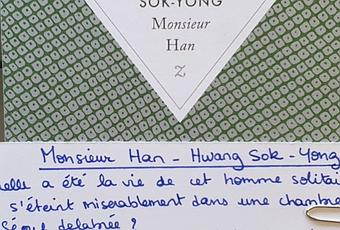 SOK-YONG
Monsieur
Han
Z
Monsieur Han - Hwang Sok-Yong
elle a été la vie de cet homme solitai
s'éteint misérablement dans une chambre
Séoul délabrée ?